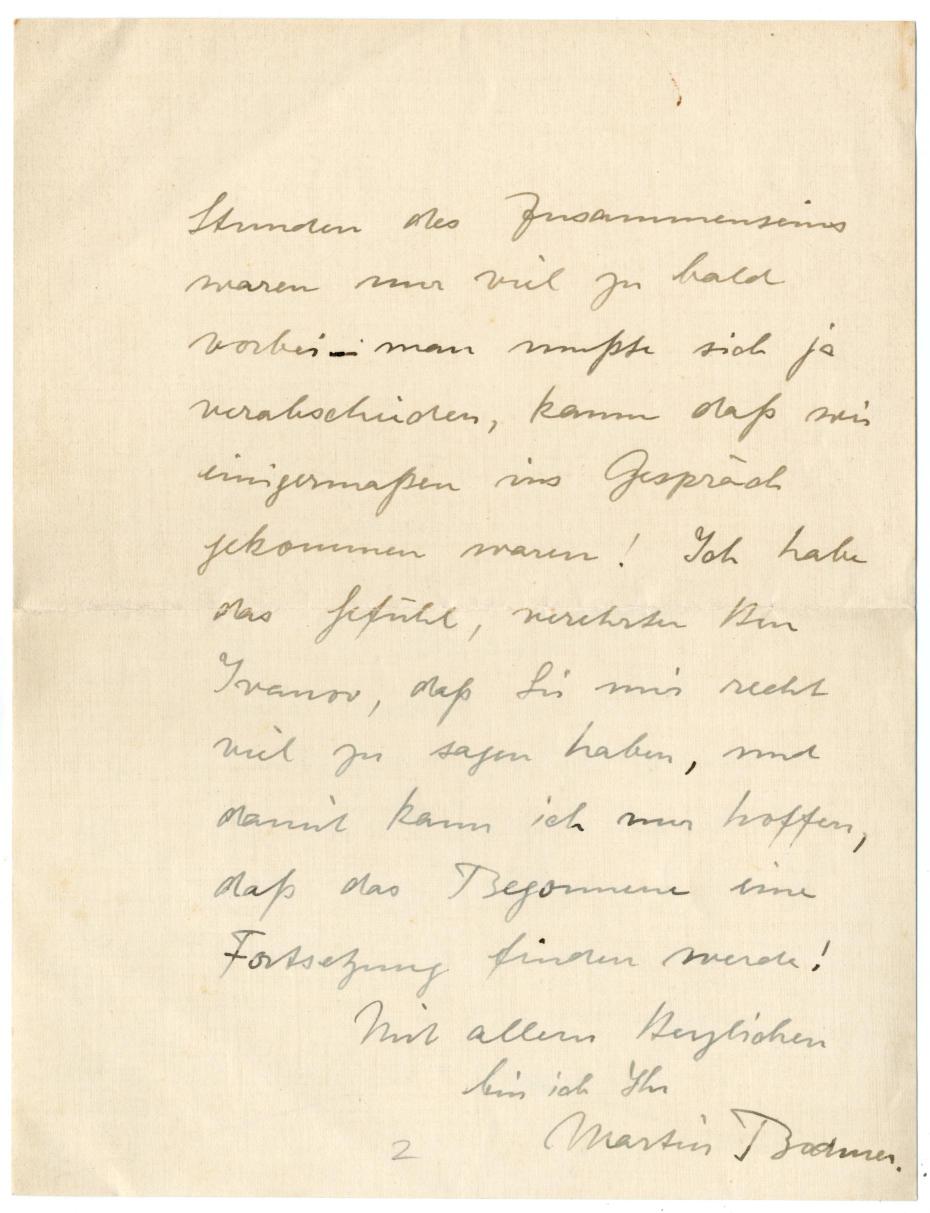 Stunden des Zusammenseins
waren nur viel zu bald
vorbei – man mußte sich ja
verabschieden, kaum daß wir
einigermaßen ins Gespräch
gekommen waren! Ich habe
das Gefühl, verehrter Herr
Ivanov, daß Sie mir recht
viel zu sagen haben, und
damit kann ich nur hoffen,
daß das Begonnene eine
Fortsetzung finden werde!
Mit allem Herzlichen
bin ich Ihr
Martin Bodmer.
2